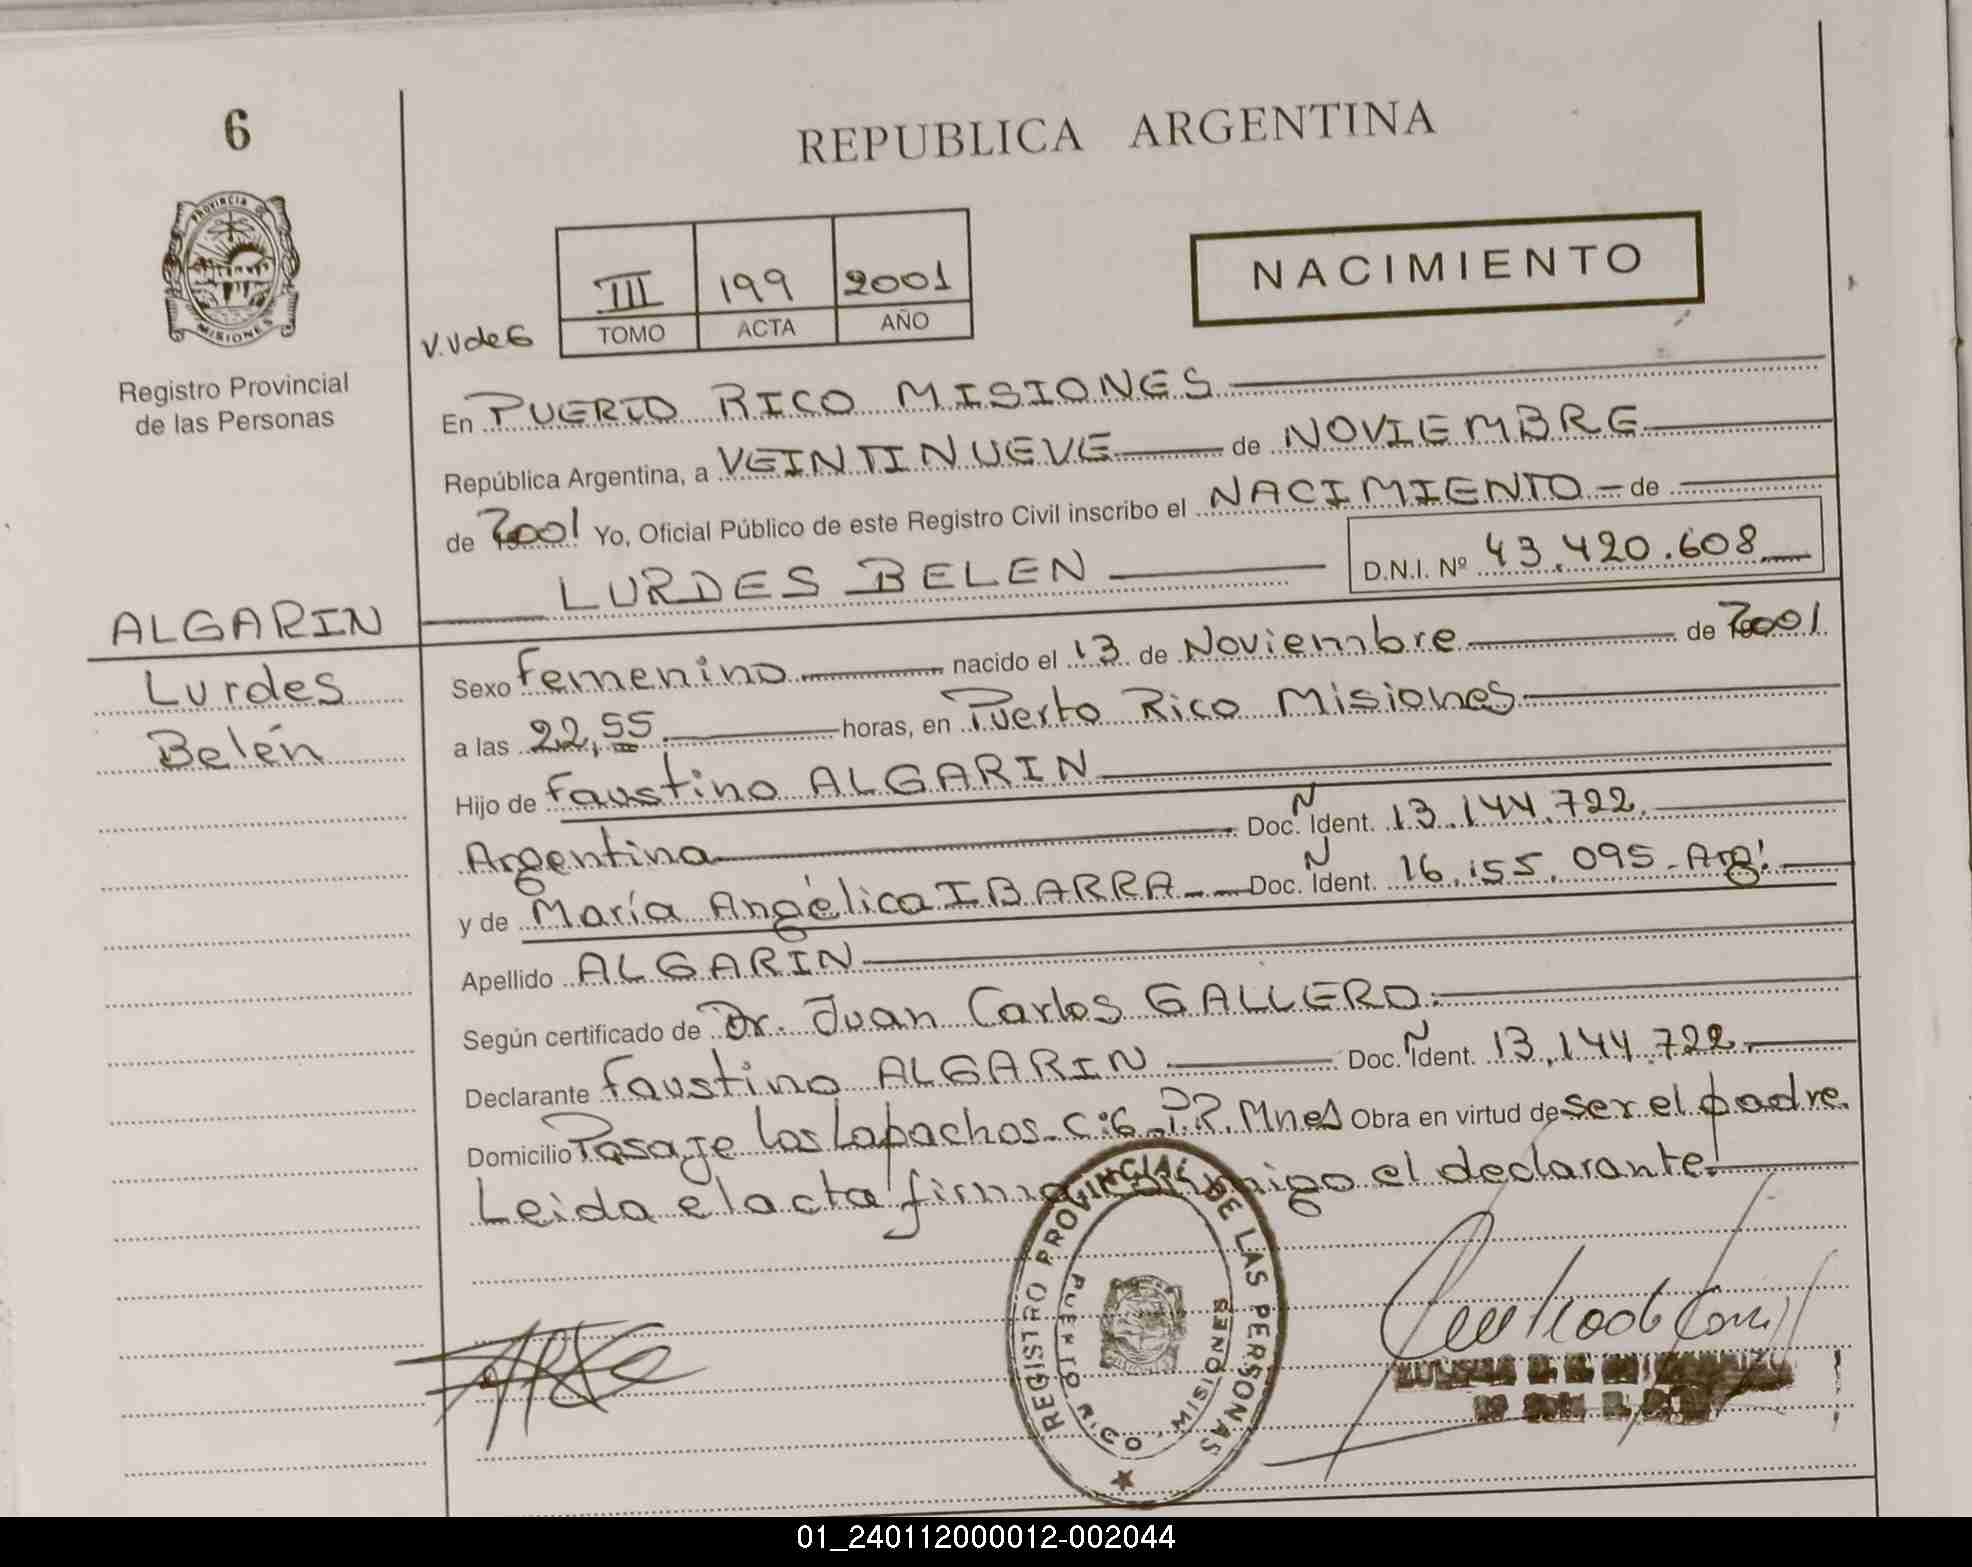 6
REPUBLICA ARGENTINA
PROVINCIA DE
MISIONES
Registro Provincial
de las Personas
III 199 2001
TOMO ACTA AÑO
NACIMIENTO
V.Vde6
En PUERTO RICO MISIONES
República Argentina, a VEINTINUEVE de NOVIEMBRE
de 2001 Yo, Oficial Público de este Registro Civil inscribo el NACIMIENTO - de
LURDES BELEN D.N.I. Nº 43.420.608
ALGARIN
Lurdes
Belén
Sexo Femenino nacido el 13 de Noviembre de 2001
a las 22,55 horas, en Puerto Rico Misiones
Hijo de Faustino ALGARIN
Argentina Doc. Ident. N 13.144.722
y de María Angélica IBARRA Doc. Ident. N 16.155.095-Arg!
Apellido ALGARIN
Según certificado de Dr. Juan Carlos GALLERO.
Declarante Faustino ALGARIN Doc. Ident. N 13.144.722
Domicilio Pasaje los Lapachos-C:6-P.R.Mnes Obra en virtud de ser el padre.
Leida el acta firma el declarante!
REGISTRO PROVINCIAL DE LAS PERSONAS
PUERTO RICO, MISIONES
01_240112000012-002044